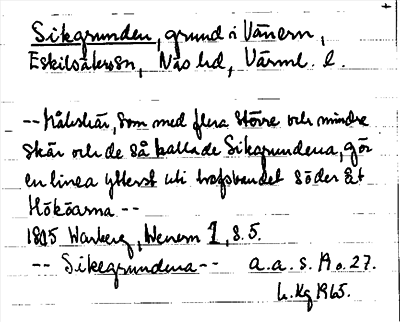 Sikgrunden, grund i Vänern,
Eskilsäters sn, Näs hd, Värml. l.
-- Målskär, som med flera större och mindre
skär och de så kallade Sikgrundena, gör
en linea ytterst uti trafsbandet söder åt
Hököarna --
1815 Warberg, Wenern 1, s. 5.
-- Sikegrundena -- a.a. s. 19 o. 27.
L. Kg 1965.